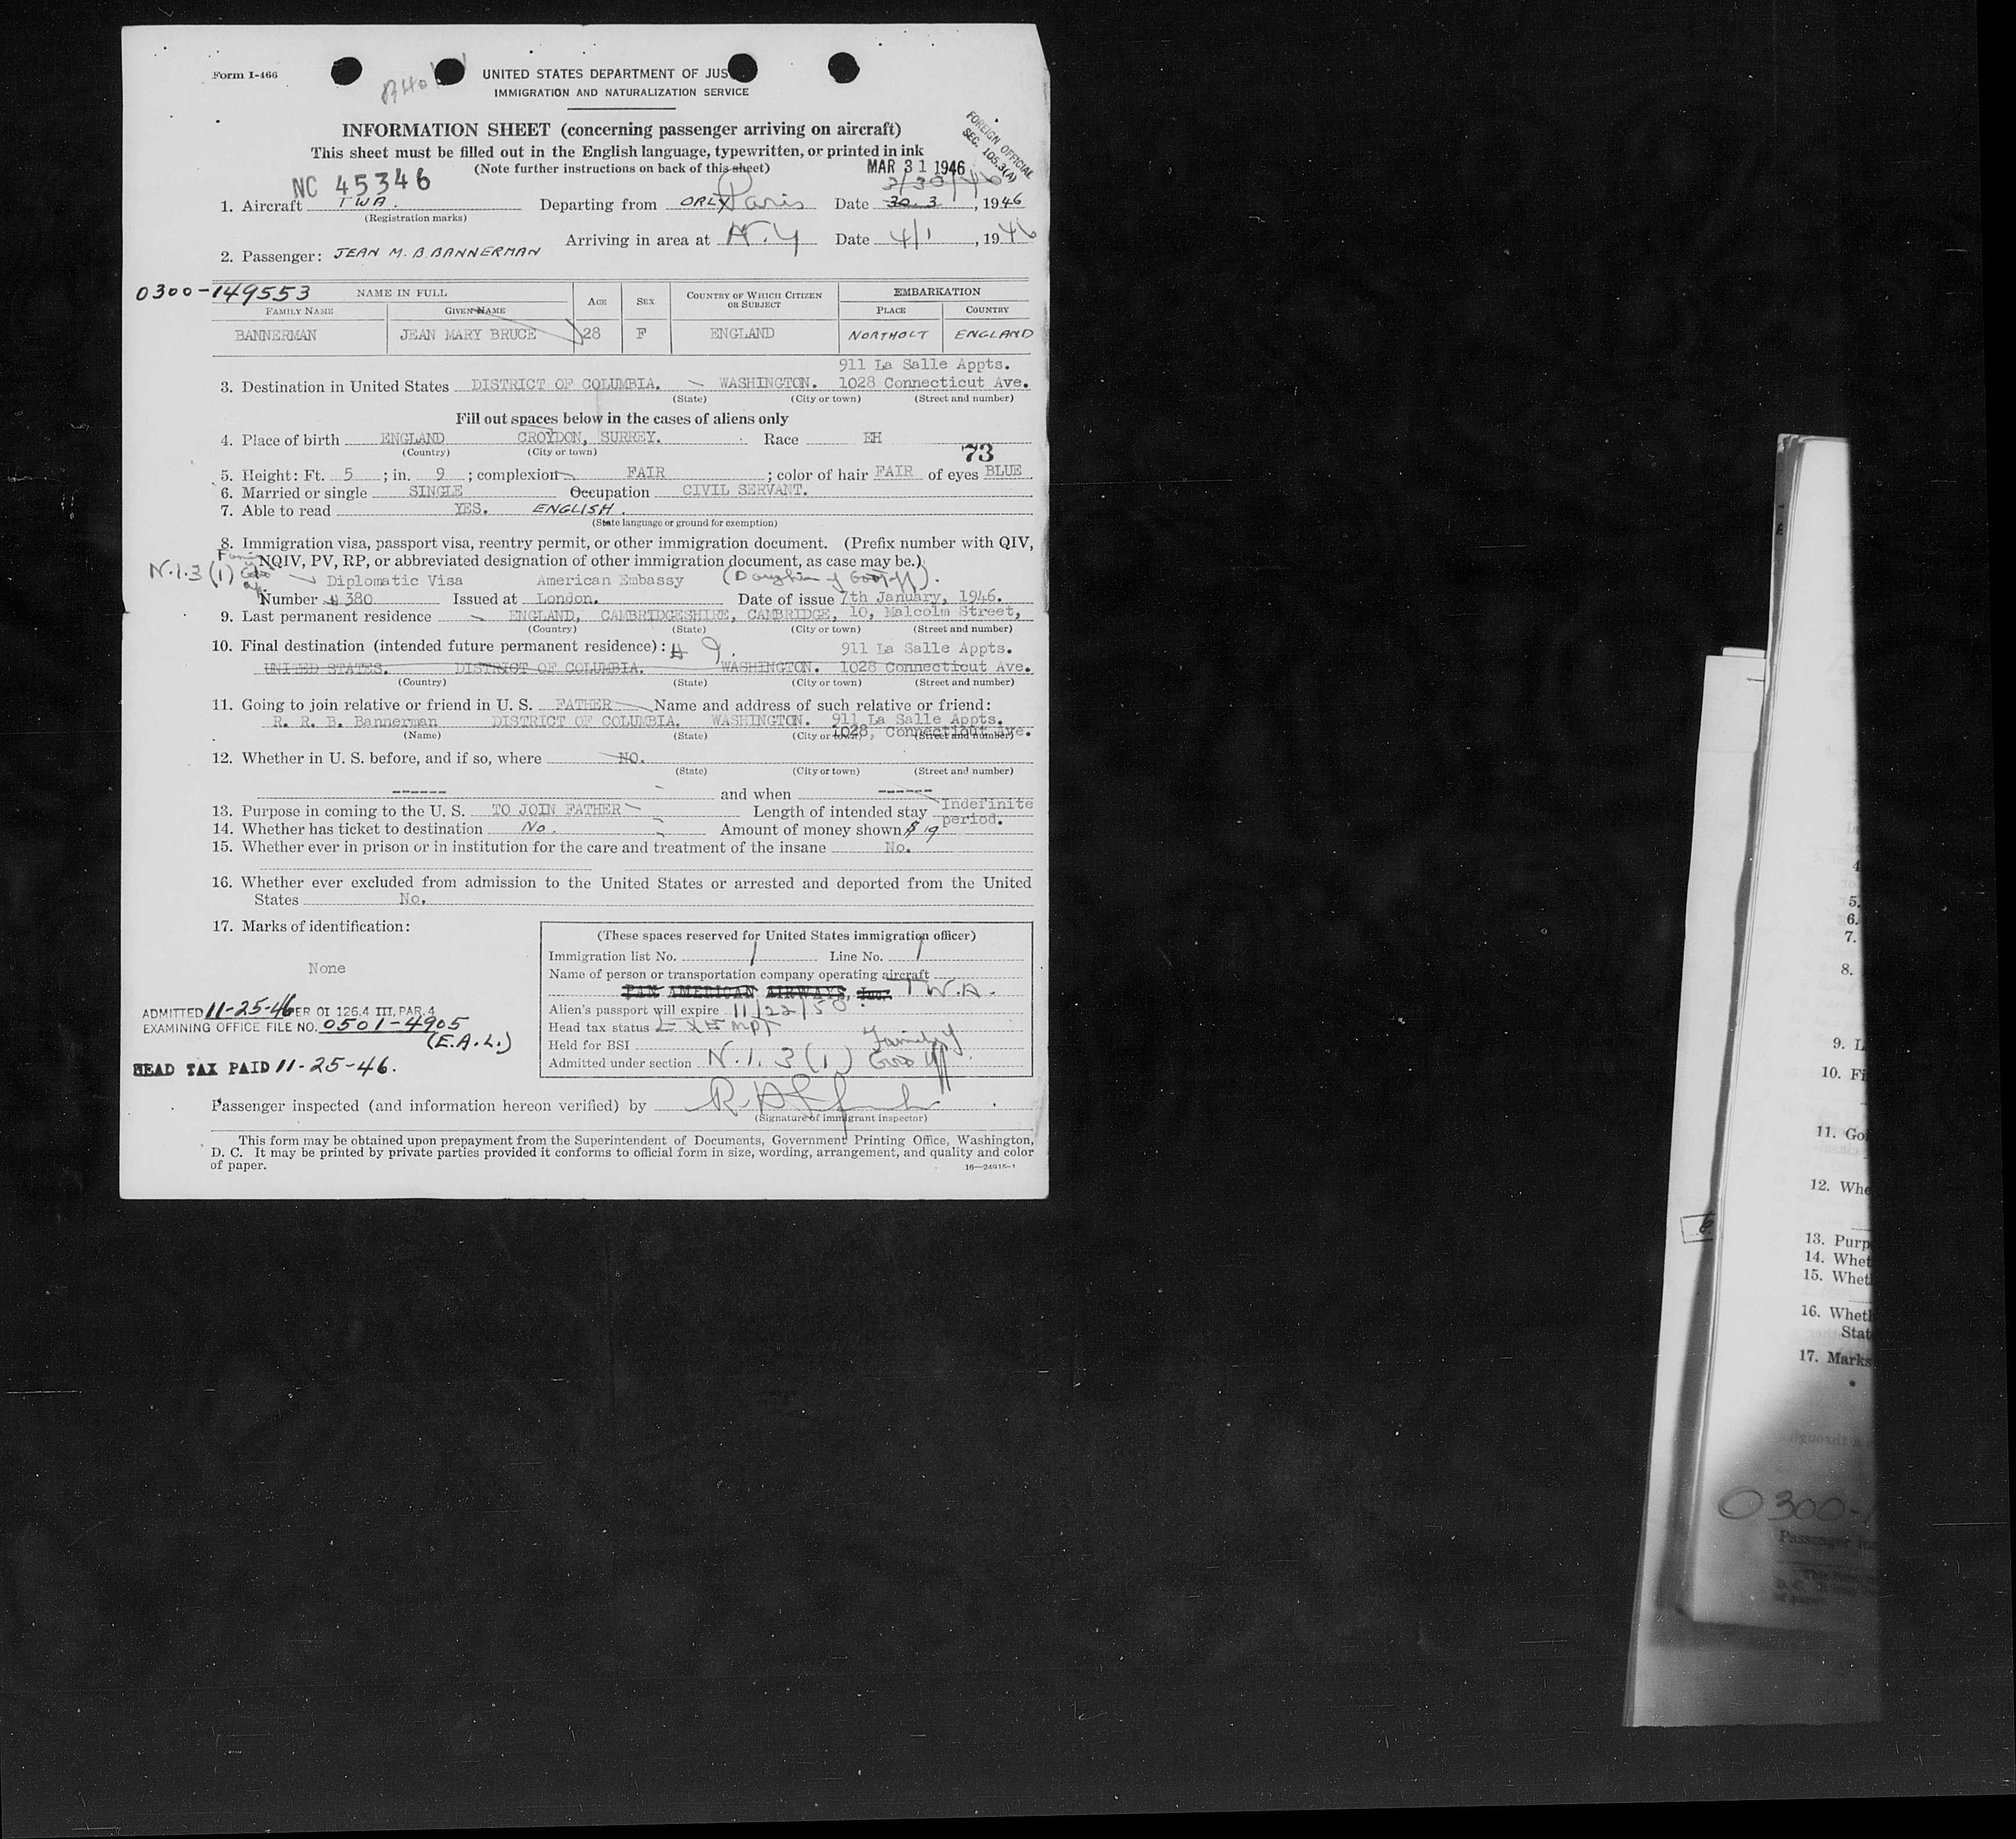 Form I-466
UNITED STATES DEPARTMENT OF JUS
IMMIGRATION AND NATURALIZATION SERVICE
INFORMATION SHEET (concerning passenger arriving on aircraft)
This sheet must be filled out in the English language, typewritten, or printed in ink
(Note further instructions on back of this sheet)
FOREIGN OFFICIAL
SEC. 105.3(A)
MAR 31 1946
NC 45346
3/30/46
1. Aircraft TWA. Departing from ORLY Paris Date 30.3, 1946
(Registration marks)
Arriving in area at N.Y Date 4/1, 1946
2. Passenger: JEAN M. B. BANNERMAN
0300-149553
NAME IN FULL AGE SEX COUNTRY OF WHICH CITIZEN OR SUBJECT EMBARKATION
FAMILY NAME GIVEN NAME PLACE COUNTRY
BANNERMAN JEAN MARY BRUCE 28 F ENGLAND NORTHOLT ENGLAND
911 La Salle Appts.
3. Destination in United States DISTRICT OF COLUMBIA. WASHINGTON. 1028 Connecticut Ave.
(State) (City or town) (Street and number)
Fill out spaces below in the cases of aliens only
4. Place of birth ENGLAND CROYDON, SURREY. Race EH
(Country) (City or town)
73
5. Height: Ft. 5; in. 9; complexion FAIR; color of hair FAIR of eyes BLUE
6. Married or single SINGLE Occupation CIVIL SERVANT.
7. Able to read YES. ENGLISH.
(State language or ground for exemption)
8. Immigration visa, passport visa, reentry permit, or other immigration document. (Prefix number with QIV,
NQIV, PV, RP, or abbreviated designation of other immigration document, as case may be.)
N.1.3(1)
Diplomatic Visa American Embassy (Daughter of Govt off).
Number # 380 Issued at London. Date of issue 7th January, 1946.
9. Last permanent residence ENGLAND, CAMBRIDGESHIRE, CAMBRIDGE, 10, Malcolm Street,
(Country) (State) (City or town) (Street and number)
10. Final destination (intended future permanent residence): # 9. 911 La Salle Appts.
UNITED STATES. DISTRICT OF COLUMBIA. WASHINGTON. 1028 Connecticut Ave.
(Country) (State) (City or town) (Street and number)
11. Going to join relative or friend in U. S. FATHER Name and address of such relative or friend:
R. R. B. Bannerman DISTRICT OF COLUMBIA. WASHINGTON. 911 La Salle Appts.
1028, Connecticut Ave.
(Name) (State) (City or town) (Street and number)
12. Whether in U. S. before, and if so, where NO.
(State) (City or town) (Street and number)
------ and when ------
13. Purpose in coming to the U. S. TO JOIN FATHER Length of intended stay Indefinite period.
14. Whether has ticket to destination No. Amount of money shown $ 19
15. Whether ever in prison or in institution for the care and treatment of the insane No.
16. Whether ever excluded from admission to the United States or arrested and deported from the United
States No.
17. Marks of identification:
None
ADMITTED 11-25-46 PER OI 126.4 III, PAR. 4
EXAMINING OFFICE FILE NO. 0501-4905
(E.A.L.)
HEAD TAX PAID 11-25-46.
(These spaces reserved for United States immigration officer)
Immigration list No. 1 Line No. 1
Name of person or transportation company operating aircraft
PAN AMERICAN AIRWAYS, Inc. T W.A.
Alien's passport will expire 11/22/50
Head tax status EXEMPT
Held for BSI
Admitted under section N.1.3(1) Family of Govt off.
Passenger inspected (and information hereon verified) by
(Signature of immigrant inspector)
This form may be obtained upon prepayment from the Superintendent of Documents, Government Printing Office, Washington,
D. C. It may be printed by private parties provided it conforms to official form in size, wording, arrangement, and quality and color
of paper.
16—24915-1
5.
6.
7.
8.
9.
10. Fi
11. Go
12. Whe
13. Purp
14. Whet
15. Whet
16. Wheth
Stat
17. Marks
6
0300-
Passenger